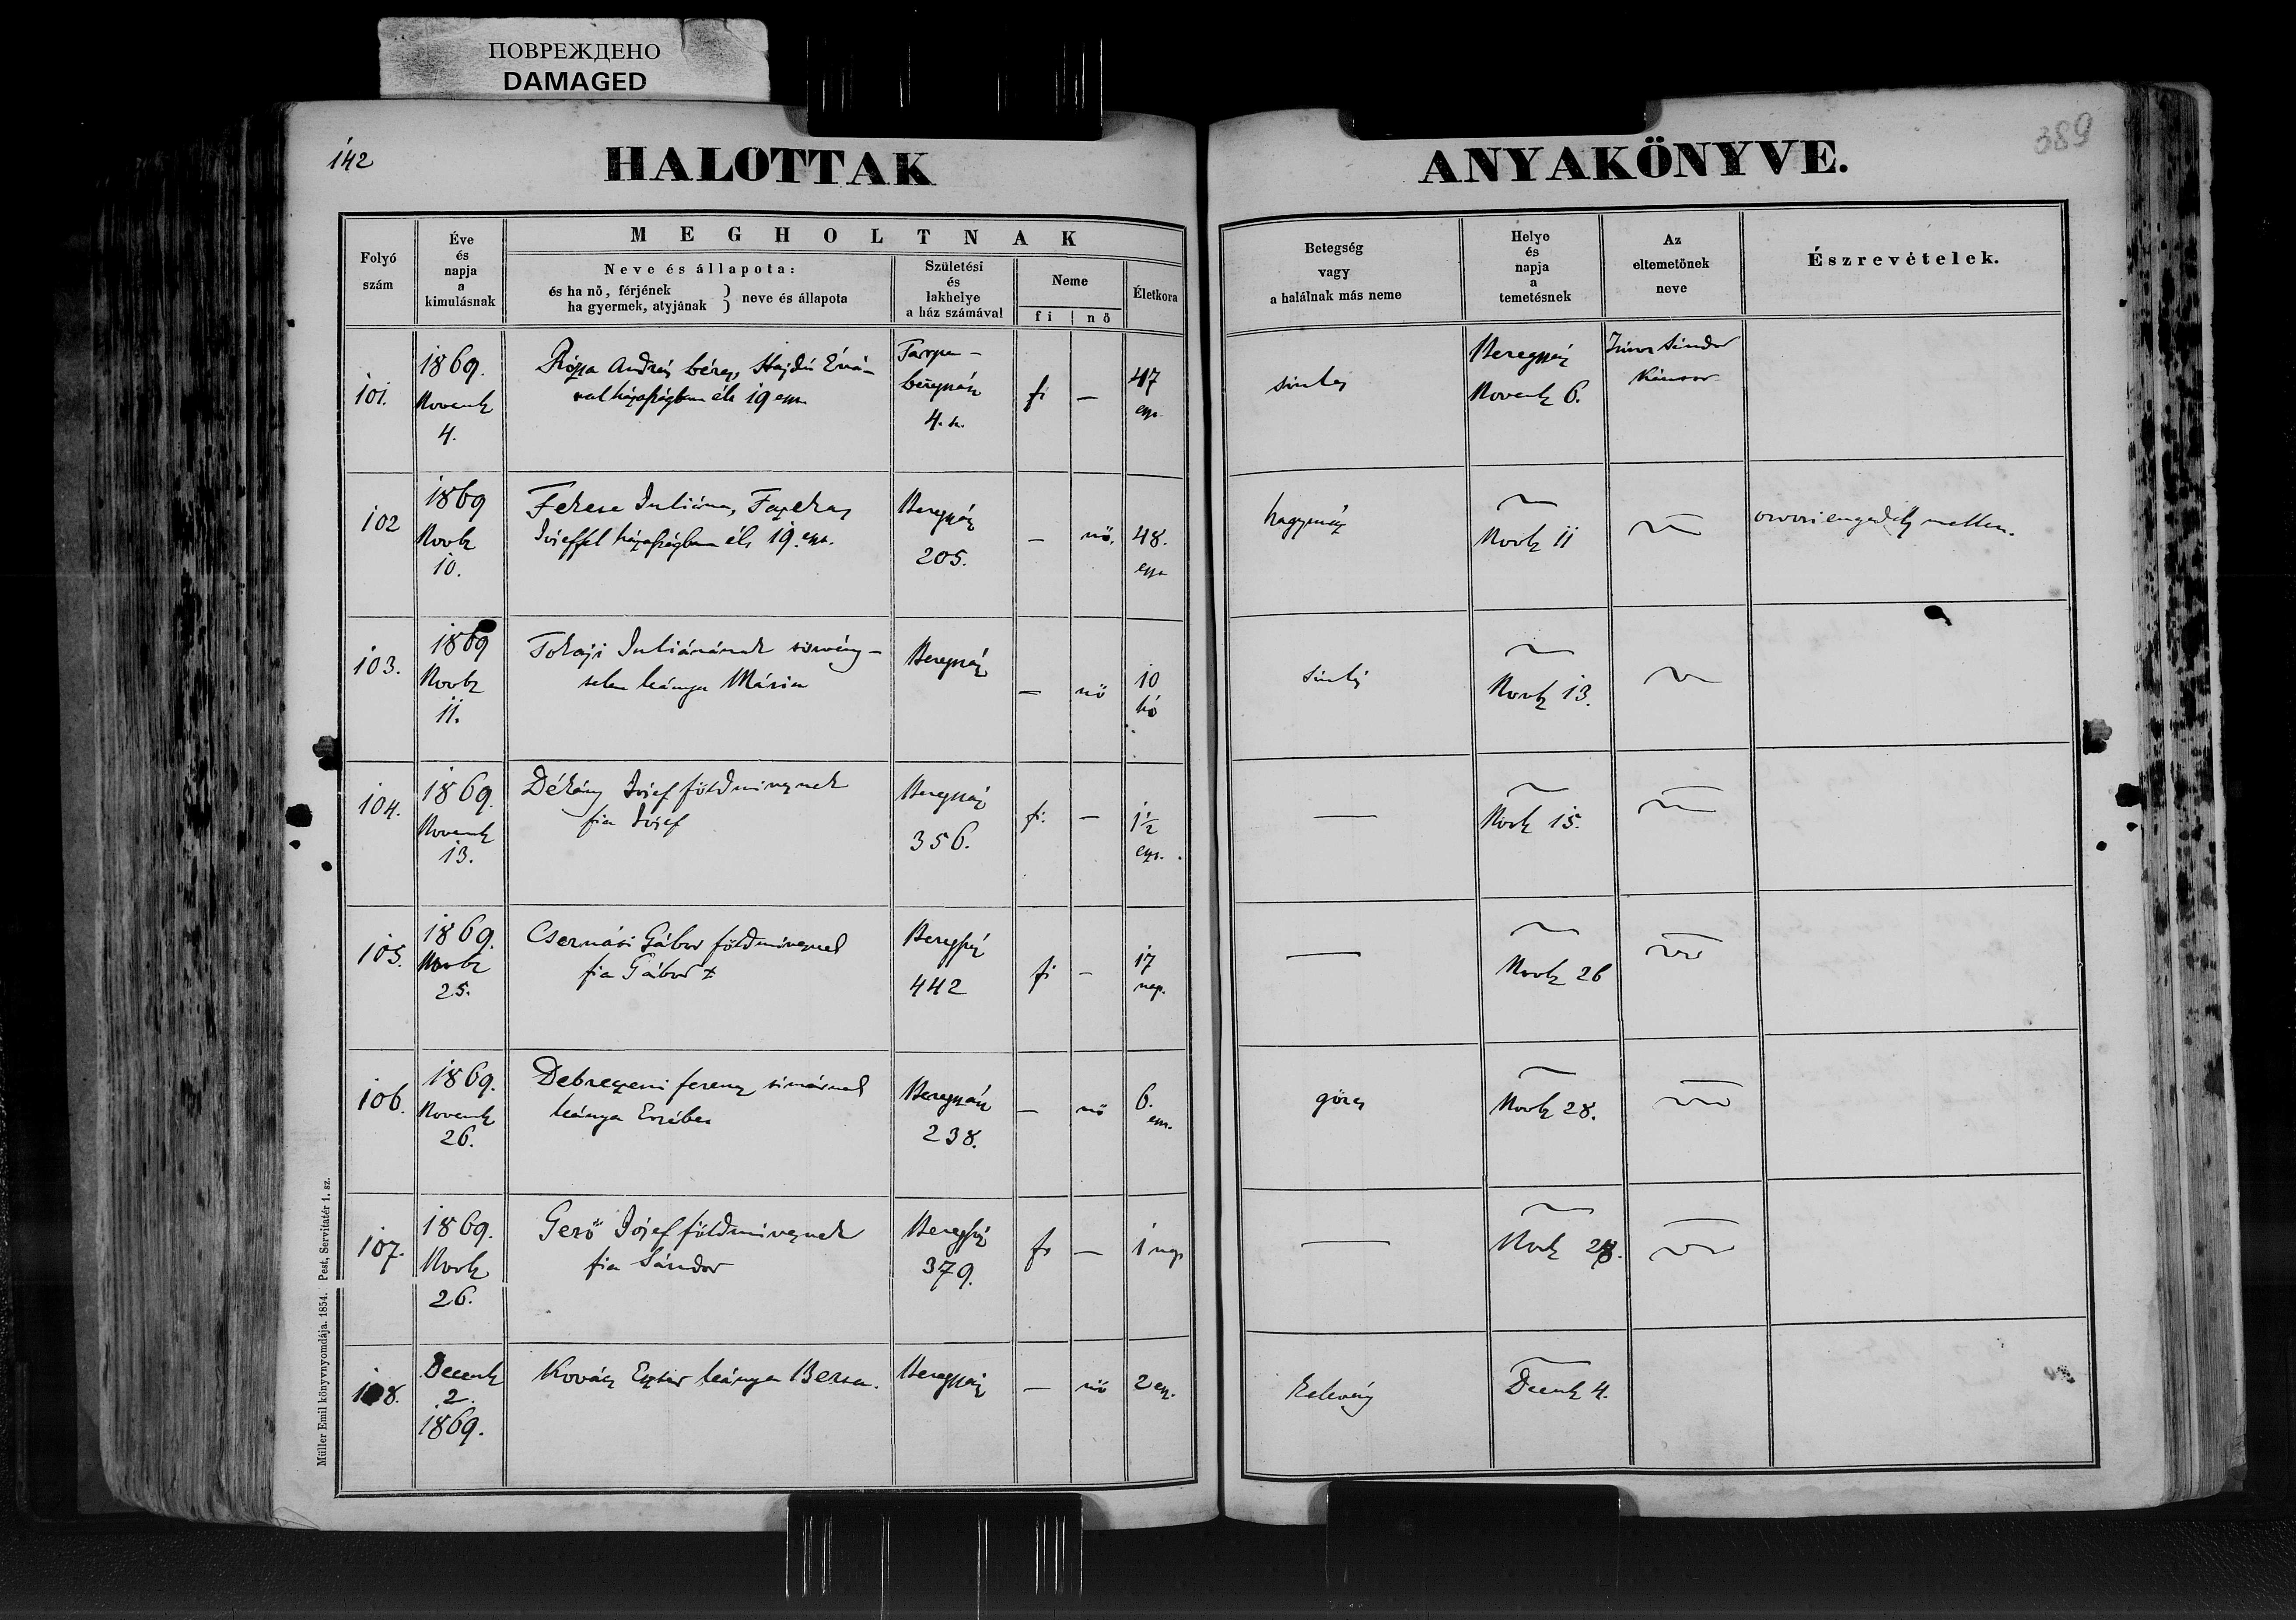 ПОВРЕЖДЕНО
DAMAGED
142
HALOTTAK
ANYAKÖNYVE.
389
Folyó
szám
Éve
és
napja
a
kimulásnak
MEGHOLTNAK
Neve és állapota:
és ha nö, férjének
ha gyermek, atyjának
} neve és állapota
Születési
és
lakhelye
a ház számával
Neme
fi | nö
Életkora
Betegség
vagy
a halálnak más neme
Helye
és
napja
a
temetésnek
Az
eltemetönek
neve
Észrevételek.
101.
1869.
Novemb
4.
András béres, Hajdú
val házasságban élt 19
4. sz.
fi
—
47
Beregszász
Novemb 6.
102
1869
Novb
10.
Fekese Juliána, Fazekas
Józseffel házasságban élt 19.
Beregszász
205.
—
nö.
48.
hagymáz
Novb 11
orvosi engedély mellett.
103.
1869
Novb
11.
Tokaji Juliánának törvény-
telen leánya Mária
Beregszász
—
nö
10
hó
Novb 13.
104.
1869.
Novemb
13.
Dékány József földmivesnek
fia József
Beregszász
356.
fi.
—
1 1/2
—
Novb 15.
105.
1869.
Novb
25.
Csernási Gábor földmivesnek
fia Gábor
Beregszász
442
fi
—
17
nap.
—
Novb 26
106.
1869.
Novemb
26.
Debreczeni ferencz
leánya Erzsébet
Beregszász
238.
—
nö
6.
görcs
Novb 28.
107.
1869.
Novb
26.
Gerö József földmivesnek
fia Sándor
Beregszász
379.
fi
—
1 nap
—
Novb 28.
108.
Decemb
2.
1869.
Kovács Eszter leánya Berta.
Beregszász
—
nö
2
Kelevény
Decemb 4.
Müller Emil könyvnyomdája. 1854. Pest, Servitatér 1. sz.